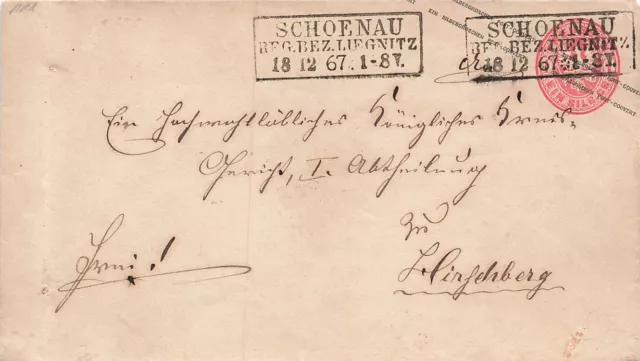 SCHOENAU
REG.BEZ.LIEGNITZ
18 12 67. 1-8V.
SCHOENAU
REG.BEZ.LIEGNITZ
18 12 67. 1-8V.
EIN SILBERGROSCHEN POST-COUVERT
Ein Hochwohllöbliches Königliches Kreis-
Gericht, I. Abtheilung
zu
Hirschberg
Frei!